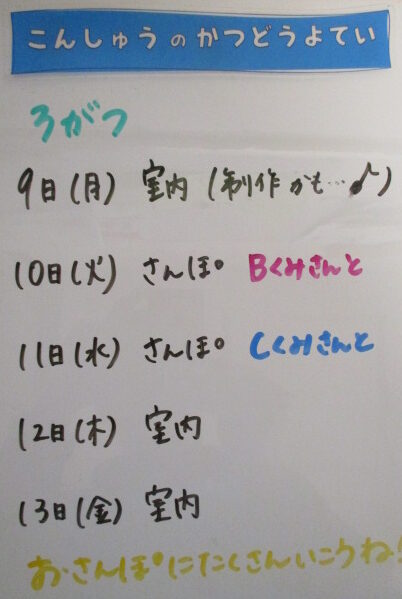 こんしゅうのかつどうよてい
3がつ
9日(月) 室内 (制作かも…♪)
10日(火) さんぽ Bくみさんと
11日(水) さんぽ Cくみさんと
12日(木) 室内
13日(金) 室内
おさんぽにたくさんいこうね!